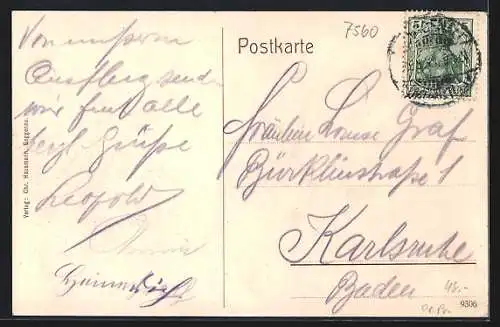 Von unserem
Ausflug senden
wir Euch alle
herzl. Grüße
Leopold
Verlag: Chr. Hausmann, Gaggenau.
7560
Postkarte
Fräulein Louise Graf
Bürklinstraße 1
Karlsruhe
Baden
48.-
9306